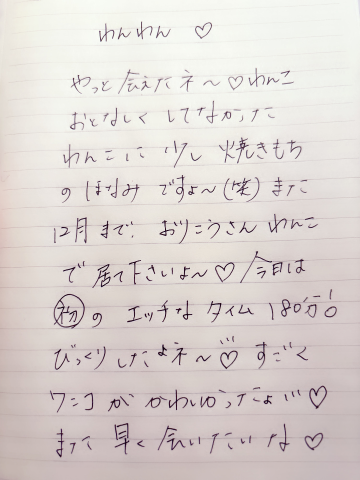 わんわん ♡
やっと会えたネ〜♡わんこ
おとなしく してなかった
わんこに 少し 焼きもち
の ほなみ ですよ〜(笑) また
12月まで、おりこうさん わんこ
で 居て下さいよ〜♡ 今日は
初の エッチな タイム 180分!
びっくり したよネ〜♡ すごく
ワンコが かわいかったよ♡
また 早く 会いたいな♡